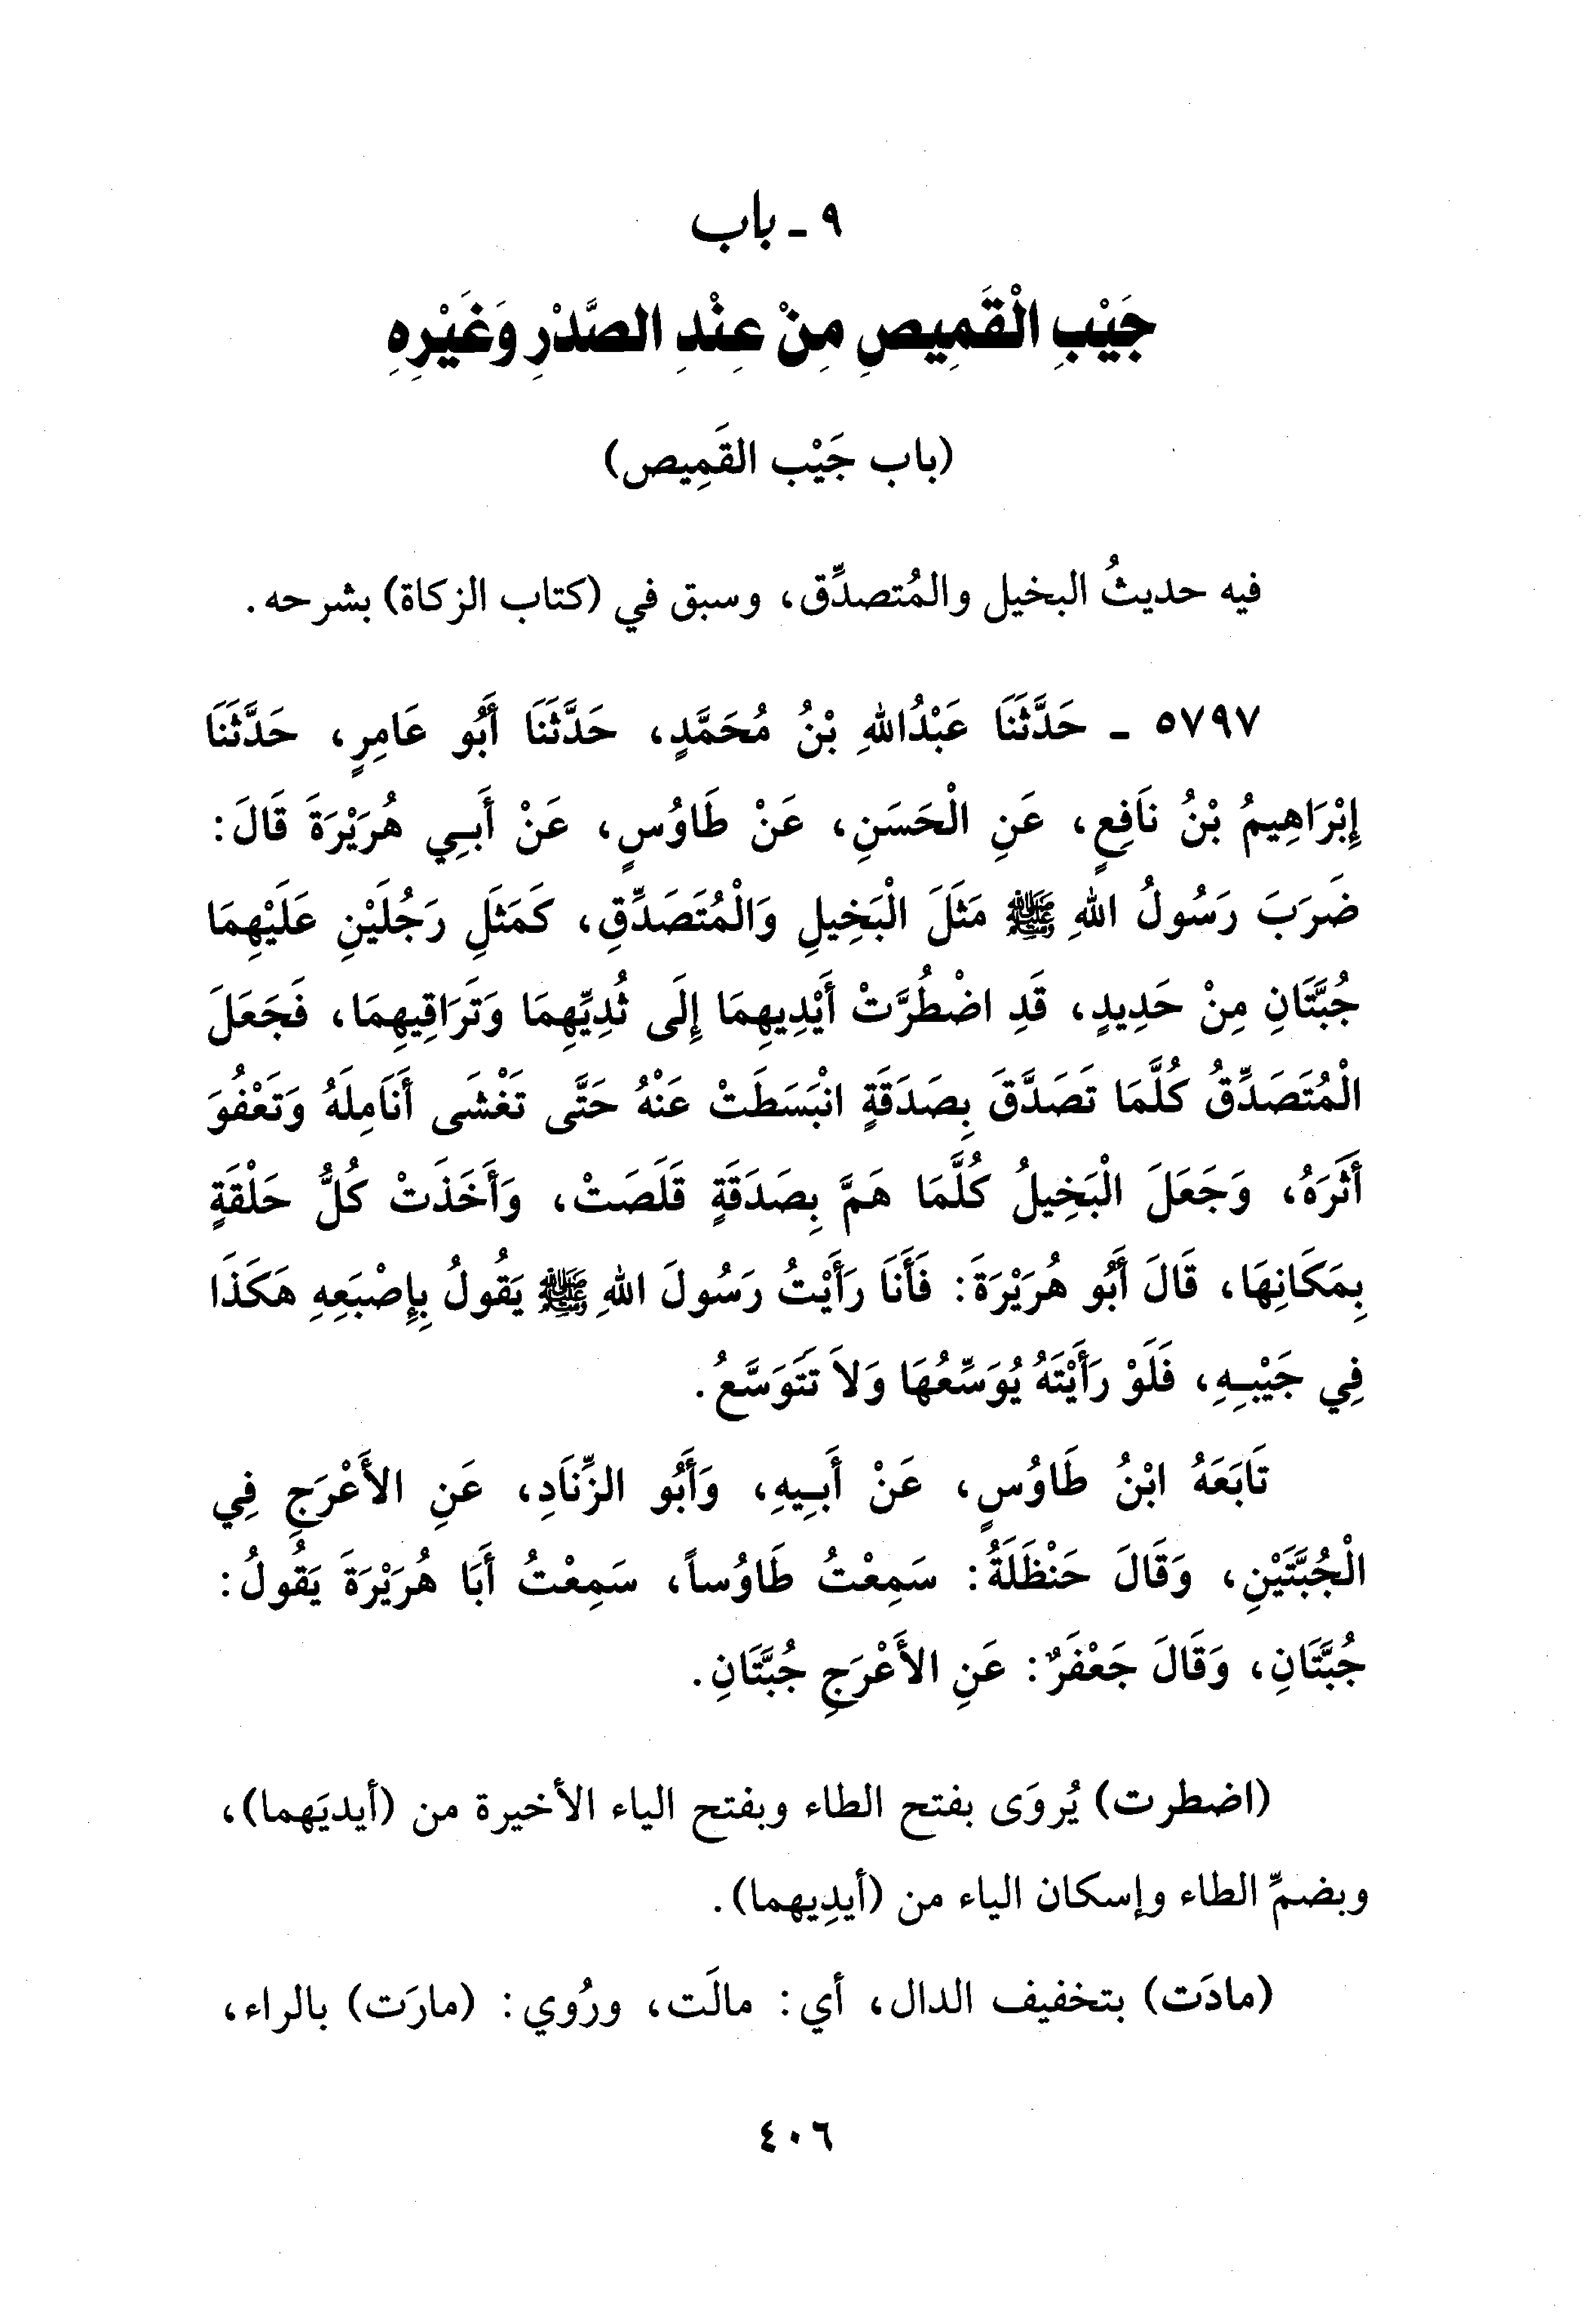 ٩ - باب
جَيْبِ الْقَمِيصِ مِنْ عِنْدِ الصَّدْرِ وَغَيْرِهِ
(باب جَيْب القَمِيص)
فيه حديثُ البخيل والمُتصدِّق، وسبق في (كتاب الزكاة) بشرحه.
٥٧٩٧ - حَدَّثَنَا عَبْدُاللهِ بْنُ مُحَمَّدٍ، حَدَّثَنَا أَبُو عَامِرٍ، حَدَّثَنَا
إِبْرَاهِيمُ بْنُ نَافِعٍ، عَنِ الْحَسَنِ، عَنْ طَاوُسٍ، عَنْ أَبِي هُرَيْرَةَ قَالَ:
ضَرَبَ رَسُولُ اللهِ ﷺ مَثَلَ الْبَخِيلِ وَالْمُتَصَدِّقِ، كَمَثَلِ رَجُلَيْنِ عَلَيْهِمَا
جُبَّتَانِ مِنْ حَدِيدٍ، قَدِ اضْطُرَّتْ أَيْدِيهِمَا إِلَى ثُدِيِّهِمَا وَتَرَاقِيهِمَا، فَجَعَلَ
الْمُتَصَدِّقُ كُلَّمَا تَصَدَّقَ بِصَدَقَةٍ انْبَسَطَتْ عَنْهُ حَتَّى تَغْشَى أَنَامِلَهُ وَتَعْفُوَ
أَثَرَهُ، وَجَعَلَ الْبَخِيلُ كُلَّمَا هَمَّ بِصَدَقَةٍ قَلَصَتْ، وَأَخَذَتْ كُلُّ حَلْقَةٍ
بِمَكَانِهَا، قَالَ أَبُو هُرَيْرَةَ: فَأَنَا رَأَيْتُ رَسُولَ اللهِ ﷺ يَقُولُ بِإِصْبَعِهِ هَكَذَا
فِي جَيْبِهِ، فَلَوْ رَأَيْتَهُ يُوَسِّعُهَا وَلاَ تَتَوَسَّعُ.
تَابَعَهُ ابْنُ طَاوُسٍ، عَنْ أَبِيهِ، وَأَبُو الزِّنَادِ، عَنِ الأَعْرَجِ فِي
الْجُبَّتَيْنِ، وَقَالَ حَنْظَلَةُ: سَمِعْتُ طَاوُساً، سَمِعْتُ أَبَا هُرَيْرَةَ يَقُولُ:
جُبَّتَانِ، وَقَالَ جَعْفَرٌ: عَنِ الأَعْرَجِ جُبَّتَانِ.
(اضطرت) يُروَى بفتح الطاء وبفتح الياء الأخيرة من (أيديَهما)،
وبضمِّ الطاء وإسكان الياء من (أيدِيهما).
(مادَت) بتخفيف الدال، أي: مالَت، ورُوي: (مارَت) بالراء،
٤٠٦